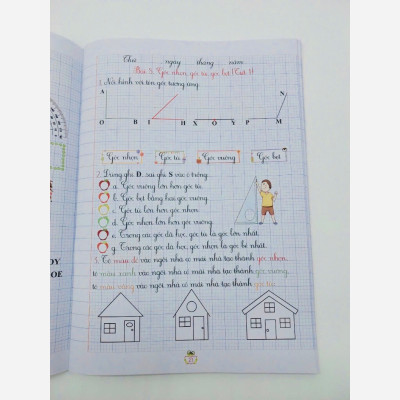 Thứ ngày tháng năm
Bài 5: Góc nhọn, góc tù, góc bẹt (Tiết 1)
1. Nối hình với tên góc tương ứng.
A N
O B I H X O Y P M
Góc nhọn Góc tù Góc vuông Góc bẹt
2. Đúng ghi Đ, sai ghi S vào ô trống.
a. Góc vuông lớn hơn góc tù.
b. Góc bẹt bằng hai góc vuông.
c. Góc tù lớn hơn góc nhọn.
d. Góc nhọn lớn hơn góc vuông.
e. Trong các góc đã học, góc tù là góc lớn nhất.
g. Trong các góc đã học, góc nhọn là góc bé nhất.
3. Tô màu đỏ vào ngôi nhà có mái nhà tạo thành góc nhọn,
tô màu xanh vào ngôi nhà có mái nhà tạo thành góc vuông,
tô màu vàng vào ngôi nhà có mái nhà tạo thành góc tù.